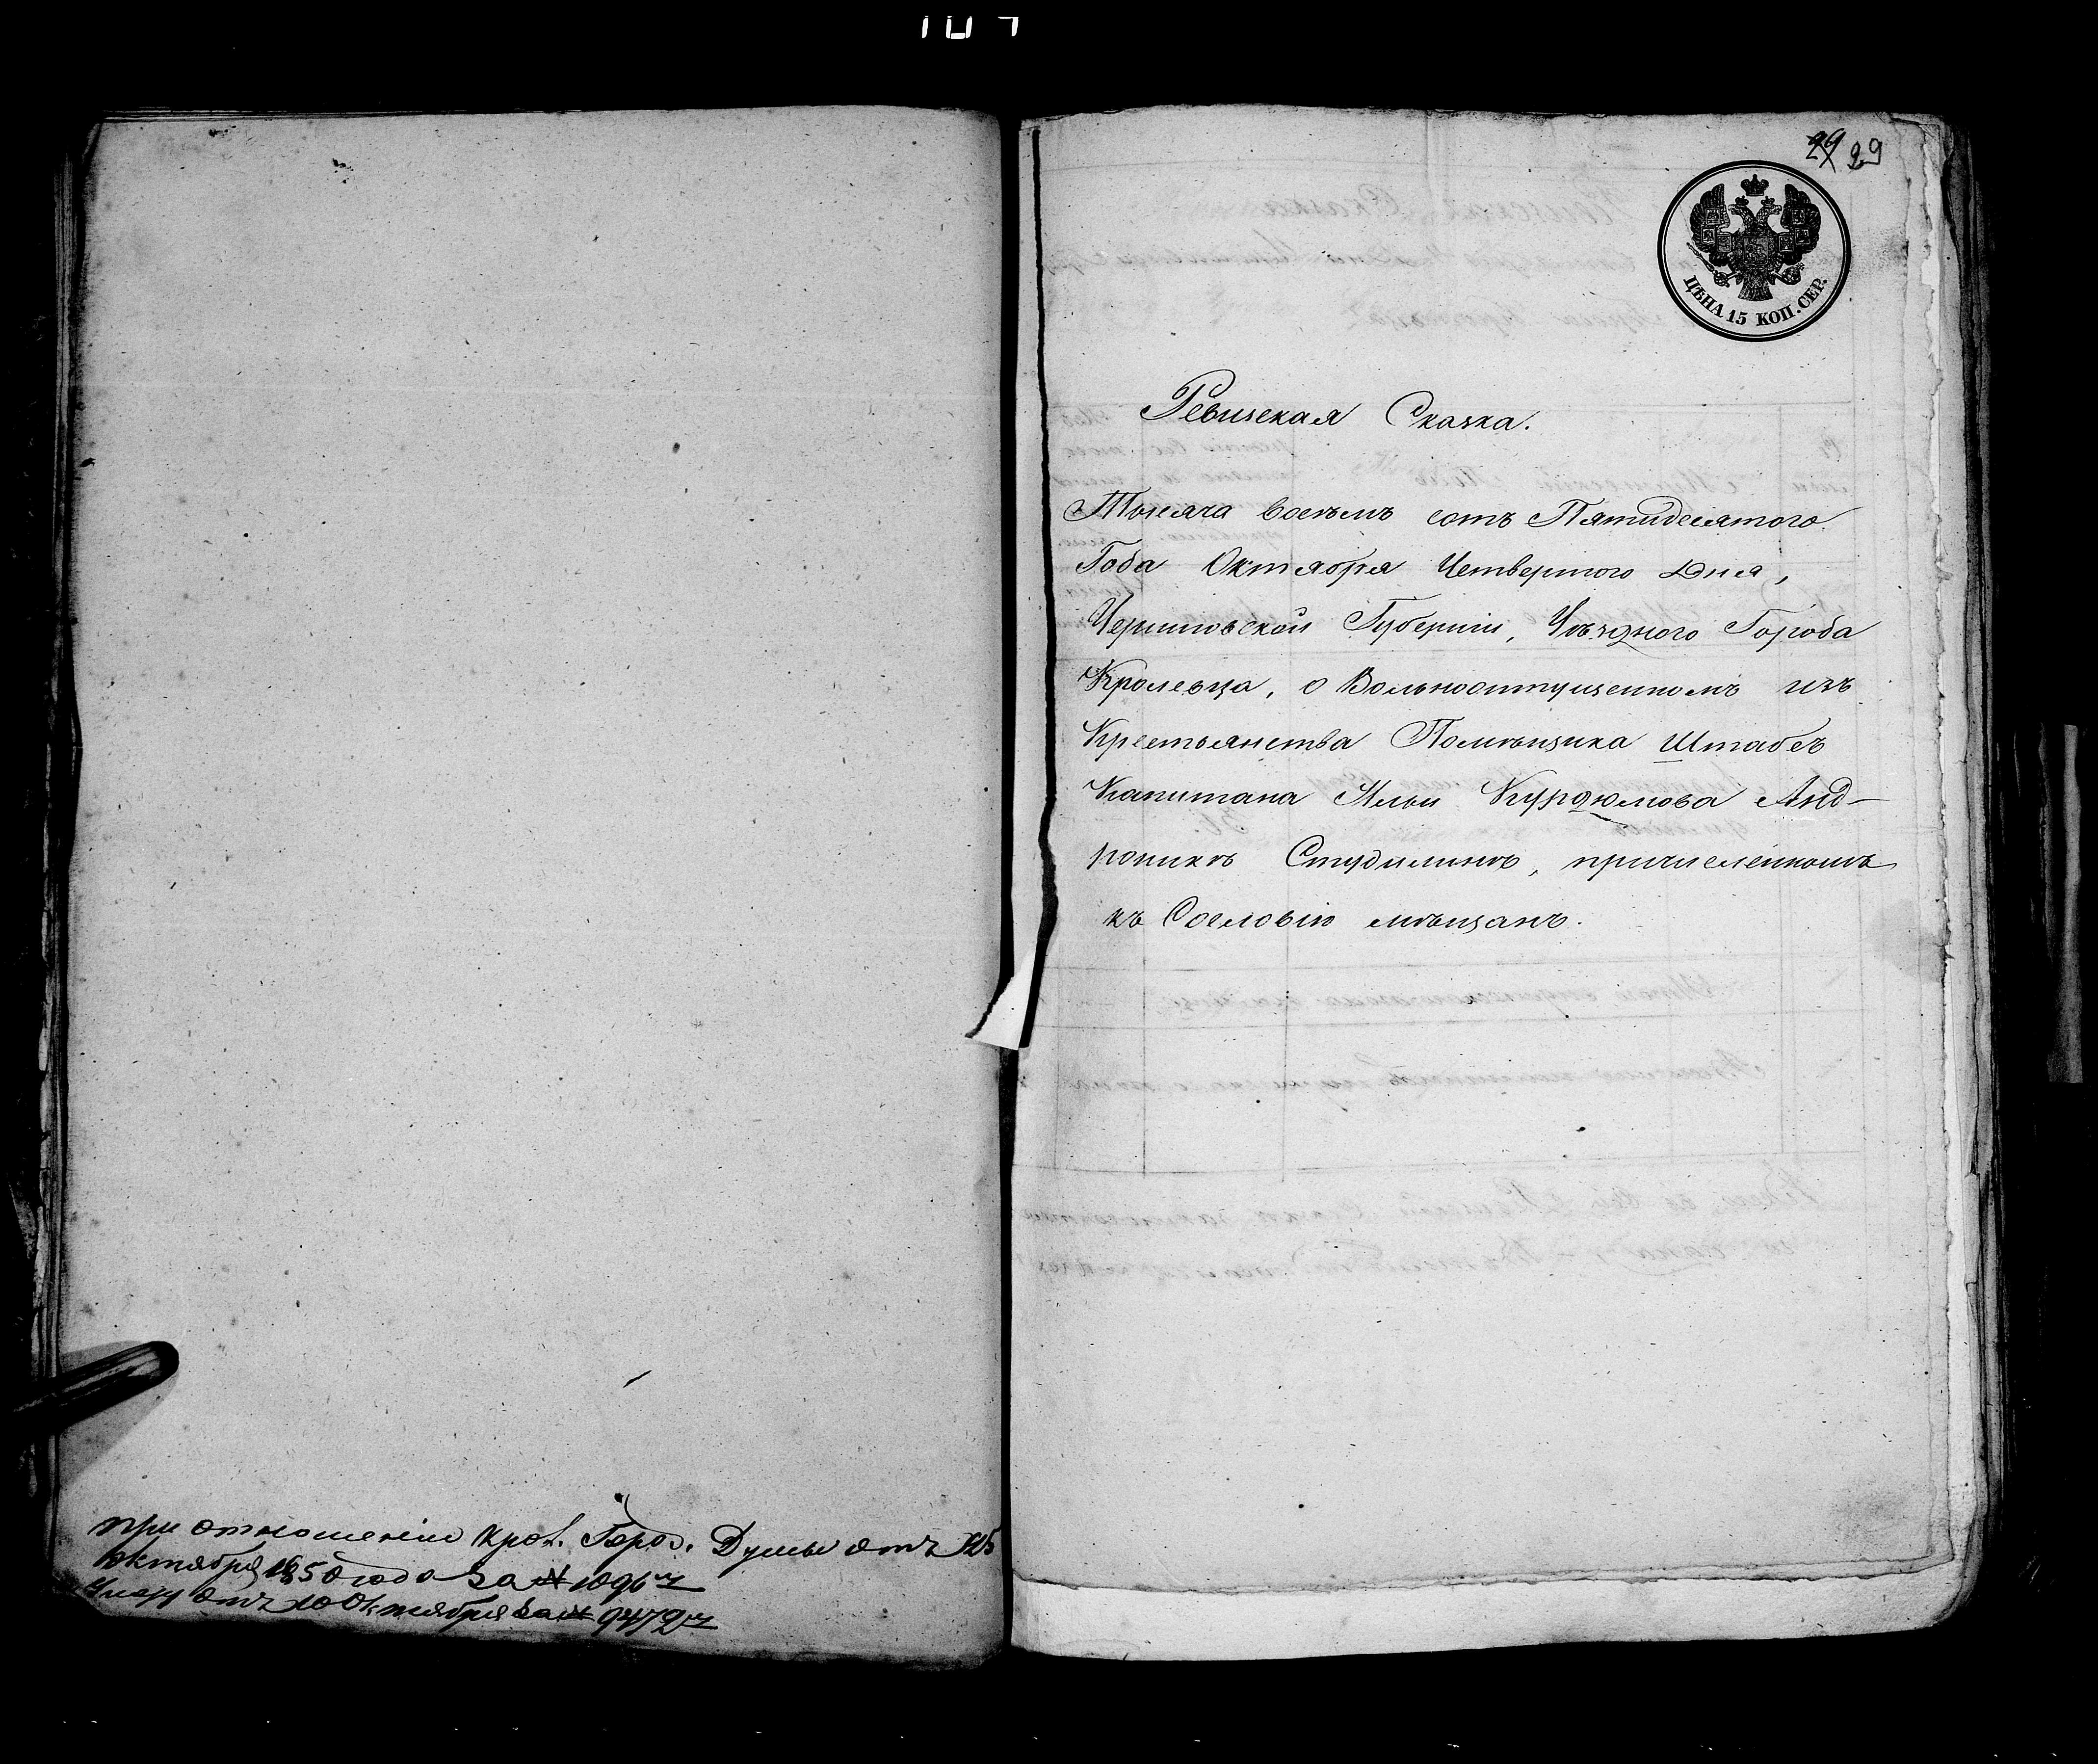 при отношеніи Крол. Город. Думы отъ
октября 1850 года за № 1096м
отъ 10 Октября за № 9472м
29 29
ЦѢНА 15 КОП. СЕР.
Ревизская Сказка.
Тысяча восемь сотъ Пятидесятого
Года Октября Четвертого Дня,
Черниговской Губерніи, Уѣздного Города
Кролевца, о Вольноотпущенномъ изъ
Крестьянства Помѣщика Штабсъ
Капитана Ильи Курдюмова Анд-
роникѣ Студилинѣ, причисленномъ
къ Сословію мѣщанъ.